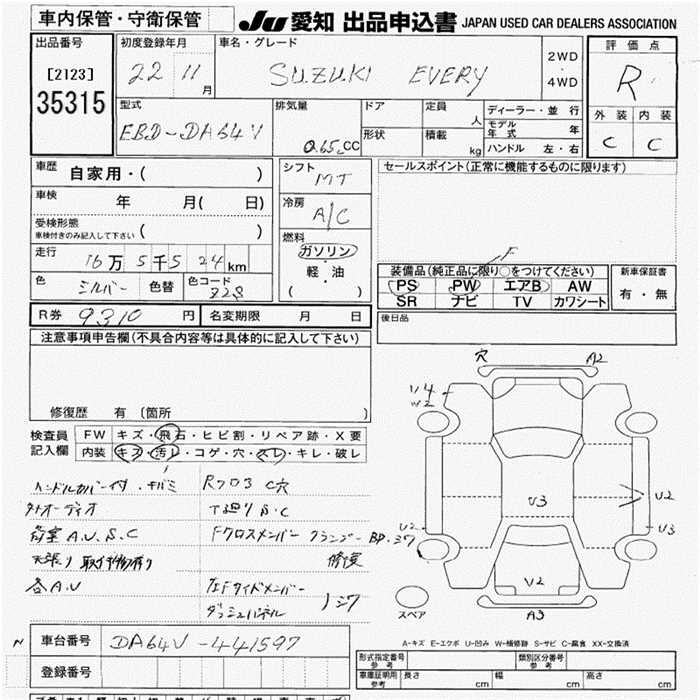 車内保管・守衛保管
JU 愛知 出品申込書 JAPAN USED CAR DEALERS ASSOCIATION
出品番号
[2123]
35315
初度登録年月
22 11 月
車名・グレード
SUZUKI EVERY
2WD
4WD
評価点
R
外装 内装
C C
型式
EBD-DA64V
排気量
0.65 cc
ドア
形状
定員
人
積載
kg
ディーラー・並行
モデル年式 年
ハンドル 左・右
車歴
自家用・( )
車検
年 月( 日)
受検形態
車検付きのみ記入して下さい ( )
走行
16万5千524km
色
シルバー 色替
色コード
Z2S
シフト
MT
冷房
A/C
燃料
ガソリン
軽・油
( )
セールスポイント(正常に機能するものに限ります)
F
装備品(純正品に限り○をつけてください)
PS PW エアB AW
SR ナビ TV カワシート
新車保証書
有・無
後日品
R券 9310 円 名変期限 月 日
注意事項申告欄(不具合内容等は具体的に記入して下さい)
修復歴 有〔箇所 〕
検査員
記入欄
FW キズ・飛石・ヒビ割・リペア跡・X要
内装 キズ・汚レ・コゲ・穴・スレ・キレ・破レ
ハンドルカバー付・キバミ
外オーディオ
荷室A.U.S.C
天張り 取付物有り
各A.U
Rフロス C穴
下廻りS.C
Fクロスメンバー
BP.37
修復
左Fサイドメンバー
ダッシュパネル
穴 A2
U4
W2
V3
U2
U2
U3
V2
A3
スペア
A-キズ E-エクボ U-凹み W-補修跡 S-サビ C-腐食 XX-交換済
N
車台番号 DA64V-441597
登録番号
形式指定番号
参考
類別区分番号
参考
車庫証明用
参考
長さ cm 幅 cm 高さ cm